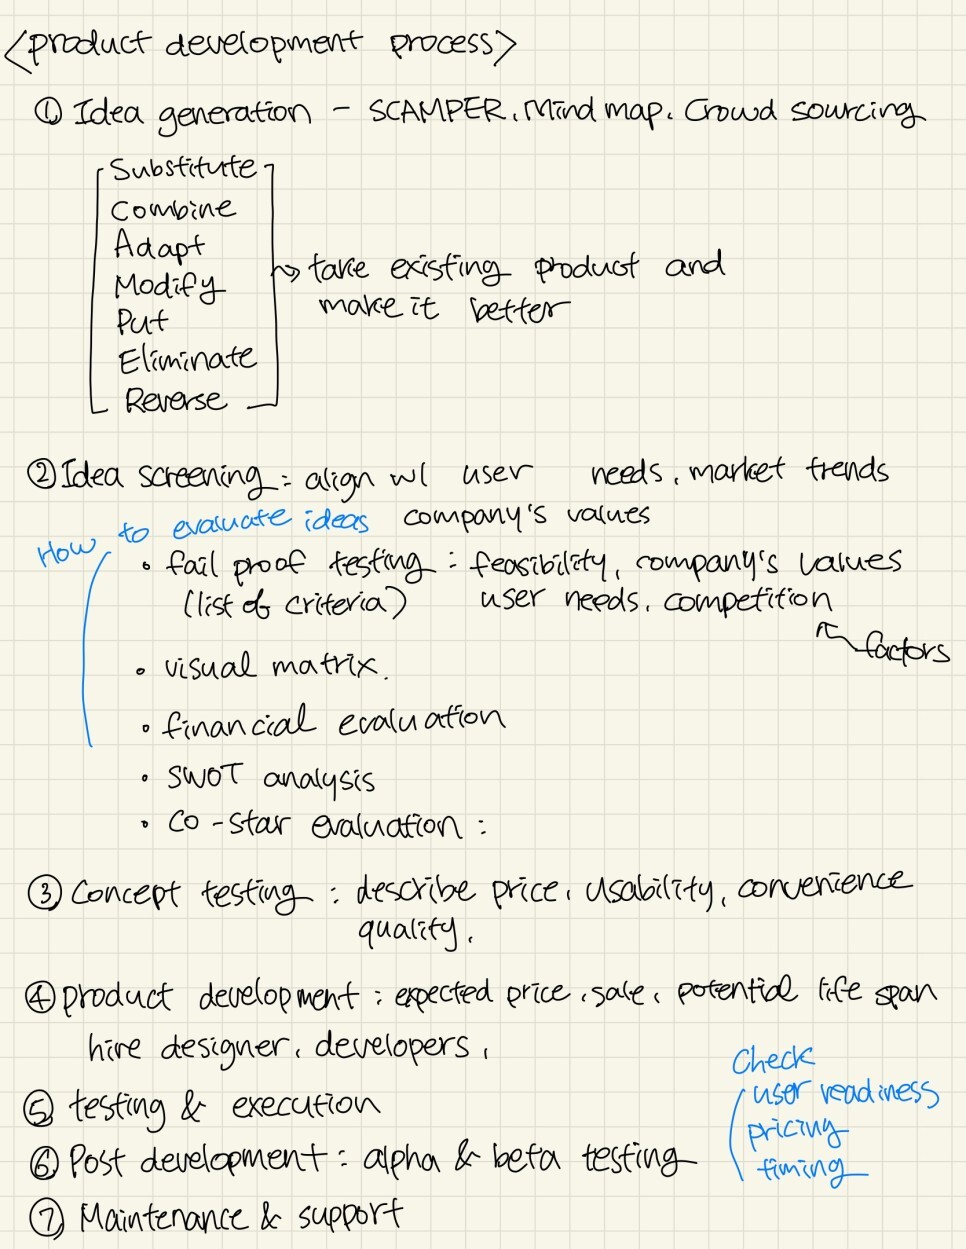 <product development process>
① Idea generation - SCAMPER, Mind map, Crowd sourcing
Substitute
Combine
Adapt
Modify
Put
Eliminate
Reverse
→ take existing product and
make it better
② Idea screening : align w/ user needs, market trends
company's values
How to evaluate ideas
• fail proof testing : feasibility, company's values
(list of criteria) user needs, competition
factors
• visual matrix.
• financial evaluation
• SWOT analysis
• co-star evaluation :
③ Concept testing : describe price, usability, convenience
quality,
④ product development : expected price, sale, potential life span
hire designer, developers,
⑤ testing & execution
⑥ Post development : alpha & beta testing
Check
user readiness
pricing
timing
⑦ Maintenance & support